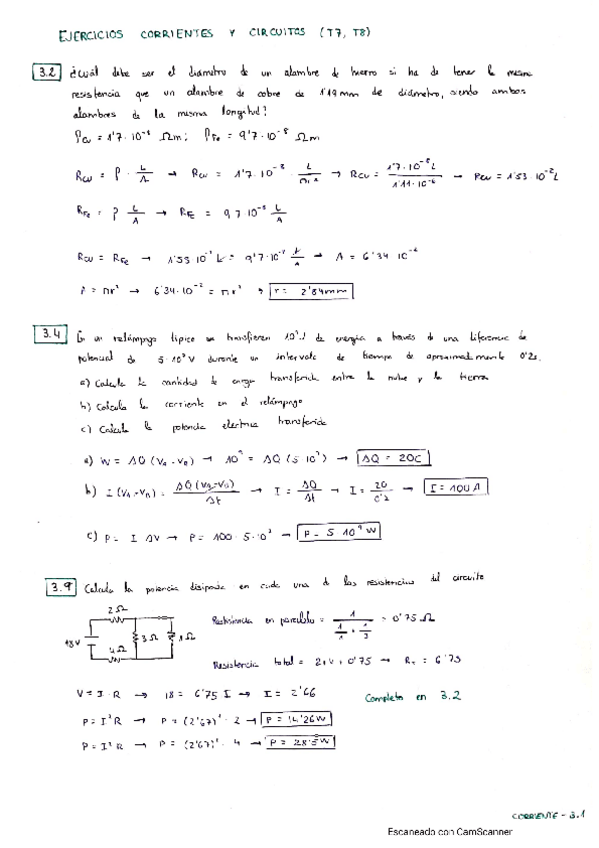 EJERCICIOS CORRIENTES Y CIRCUITOS (T7, T8)
3.2 ¿Cuál debe ser el diámetro de un alambre de hierro si ha de tener la misma
resistencia que un alambre de cobre de 1'19mm de diámetro, siendo ambos
alambres de la misma longitud?
ρCu = 1'7·10⁻⁸ Ωm; ρFe = 9'7·10⁻⁸ Ωm
RCu = ρ · L/A → RCu = 1'7·10⁻⁸ · L/A → RCu = 1'7·10⁻⁸L / 1'11·10⁻⁶ → RCu = 1'53·10⁻²L
RFe = ρ L/A → RFE = 9'7·10⁻⁸ L/A
RCu = RFe → A = 6'34
A = πr² → = πr² → r = 2'84mm
3.4 En un relámpago típico se transfieren de energía a través de una diferencia de
potencial de V durante un intervalo de tiempo de aproximadamente 0'2s.
a) Calcula la cantidad de carga transferida entre la nube y la tierra
b) Calcula la corriente en el relámpago
c) Calcula la potencia eléctrica transferida
a) W = ΔQ (VA-VB) → = ΔQ → ΔQ = 20C
b) I (VA-VB) = ΔQ(VA-VB)/Δt → I = ΔQ/Δt → I = 20/0'2 → I = 100 A
c) P = I ΔV → P = 100 · 5 · → P = W
3.9 Calcula la potencia disipada en cada una de las resistencias del circuito
2Ω
18V
3Ω
1Ω
4Ω
Resistencia en paralelo = 1 / (1/1 + 1/3) = 0'75 Ω
Resistencia total = 2+4+0'75 → RT = 6'75
V = I · R → 18 = 6'75 I → I = 2'66
Completo en 3.2
P = I²R → P = (2'67)² · 2 → P = 14'26W
P = I²R → P = (2'67)² · 4 → P = 28'5W
CORRIENTE - 3.1
Escaneado con CamScanner